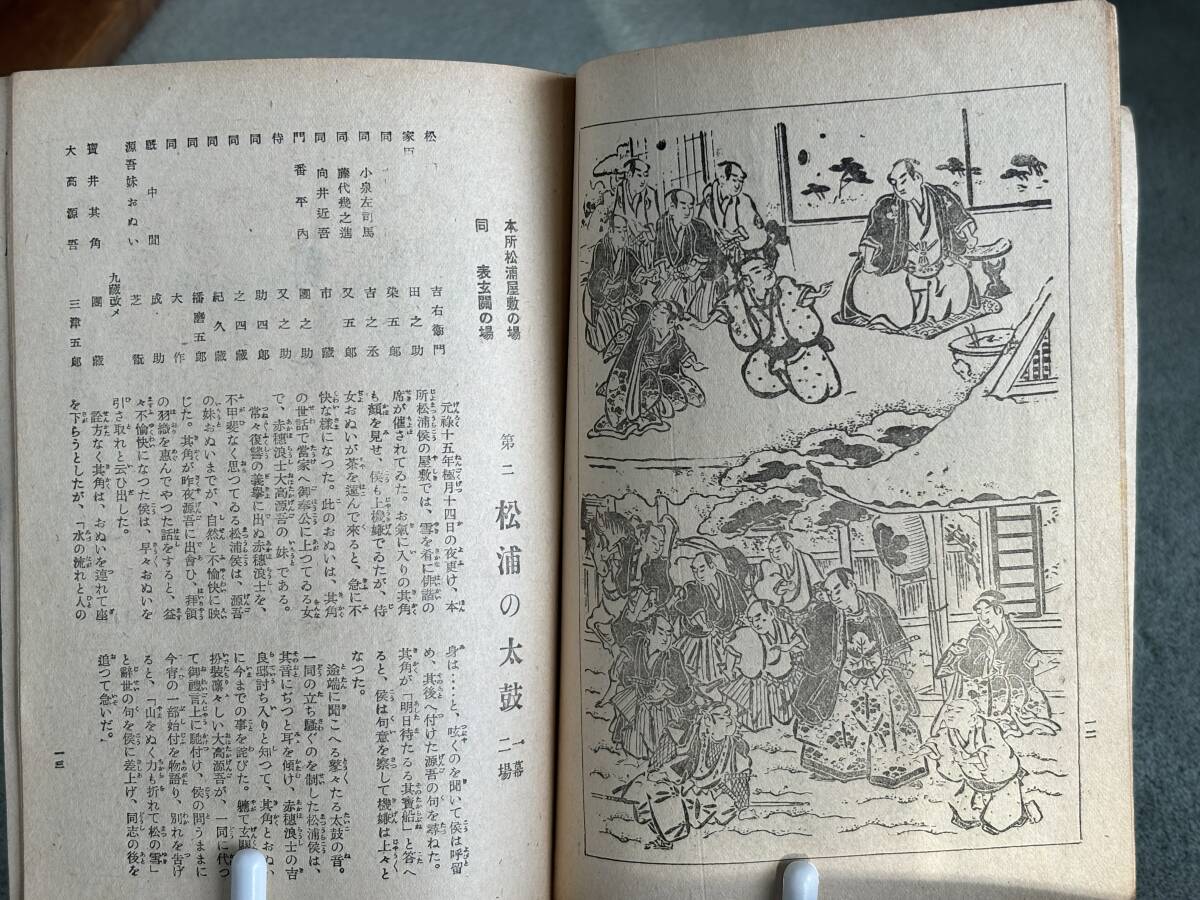 一二
第二 松浦の太鼓 一幕二場
本所松浦屋敷の場
同 表玄關の場
松 吉右衛門
家臣 田之助
同 染五郎
同 小泉左司馬 吉之丞
同 藤代幾之進 又五郎
同 向井近吾 市藏
門番平内 團之助
侍 又之助
同 助四郎
同 之四藏
同 紀久藏
同 播磨五郎
同 大作
厩中間 成助
源吾妹おぬい 芝翫
寶井其角 九藏改メ 團藏
大高源吾 三津五郎
元祿十五年極月十四日の夜更け、本
所松浦侯の屋敷では、雪を肴に俳諧の
席が催されてゐた。お氣に入りの其角
も顏を見せ、侯も上機嫌でゐたが、侍
女おぬいが茶を運んで來ると、急に不
快な樣になつた。此のおぬいは、其角
の世話で當家へ御奉公に上つてゐる女
で、赤穗浪士大高源吾の妹である。
常々復讐の義擧に出ぬ赤穗浪士を、
不甲斐なく思つてゐる松浦侯は、源吾
の妹おぬいまでが、自然と不愉快に映
じた。其角が昨夜源吾に出會ひ、拜領
の羽織を惠んでやつた話をすると、益
々不愉快になつた侯は、早々おぬいを
引き取れと云ひ出した。
詮方なく其角は、おぬいを連れて座
を下らうとしたが、「水の流れと人の
身は‥‥と、呟くのを聞いて侯は呼留
め、其後へ付けた源吾の句を尋ねた。
其角が「明日待たるる其寶船」と答へ
ると、侯は句意を察して機嫌は上々と
なつた。
途端に聞こへる鼕々たる太鼓の音。
一同の立ち騷ぐのを制した松浦侯は、
其音にぢつと耳を傾け、赤穗浪士の吉
良邸討ち入りと知つて、其角とおぬい
に今までの事を詫びた。軈て玄關
扮裝凛々しい大高源吾が、一同に代つ
て御禮言上に馳付け、侯の問うままに
今宵の一部始付を物語り、別れを告げ
ると、「山をぬく力も折れて松の雪」
と辭世の句を侯に差上げ、同志の後を
追つて急いだ。
一三